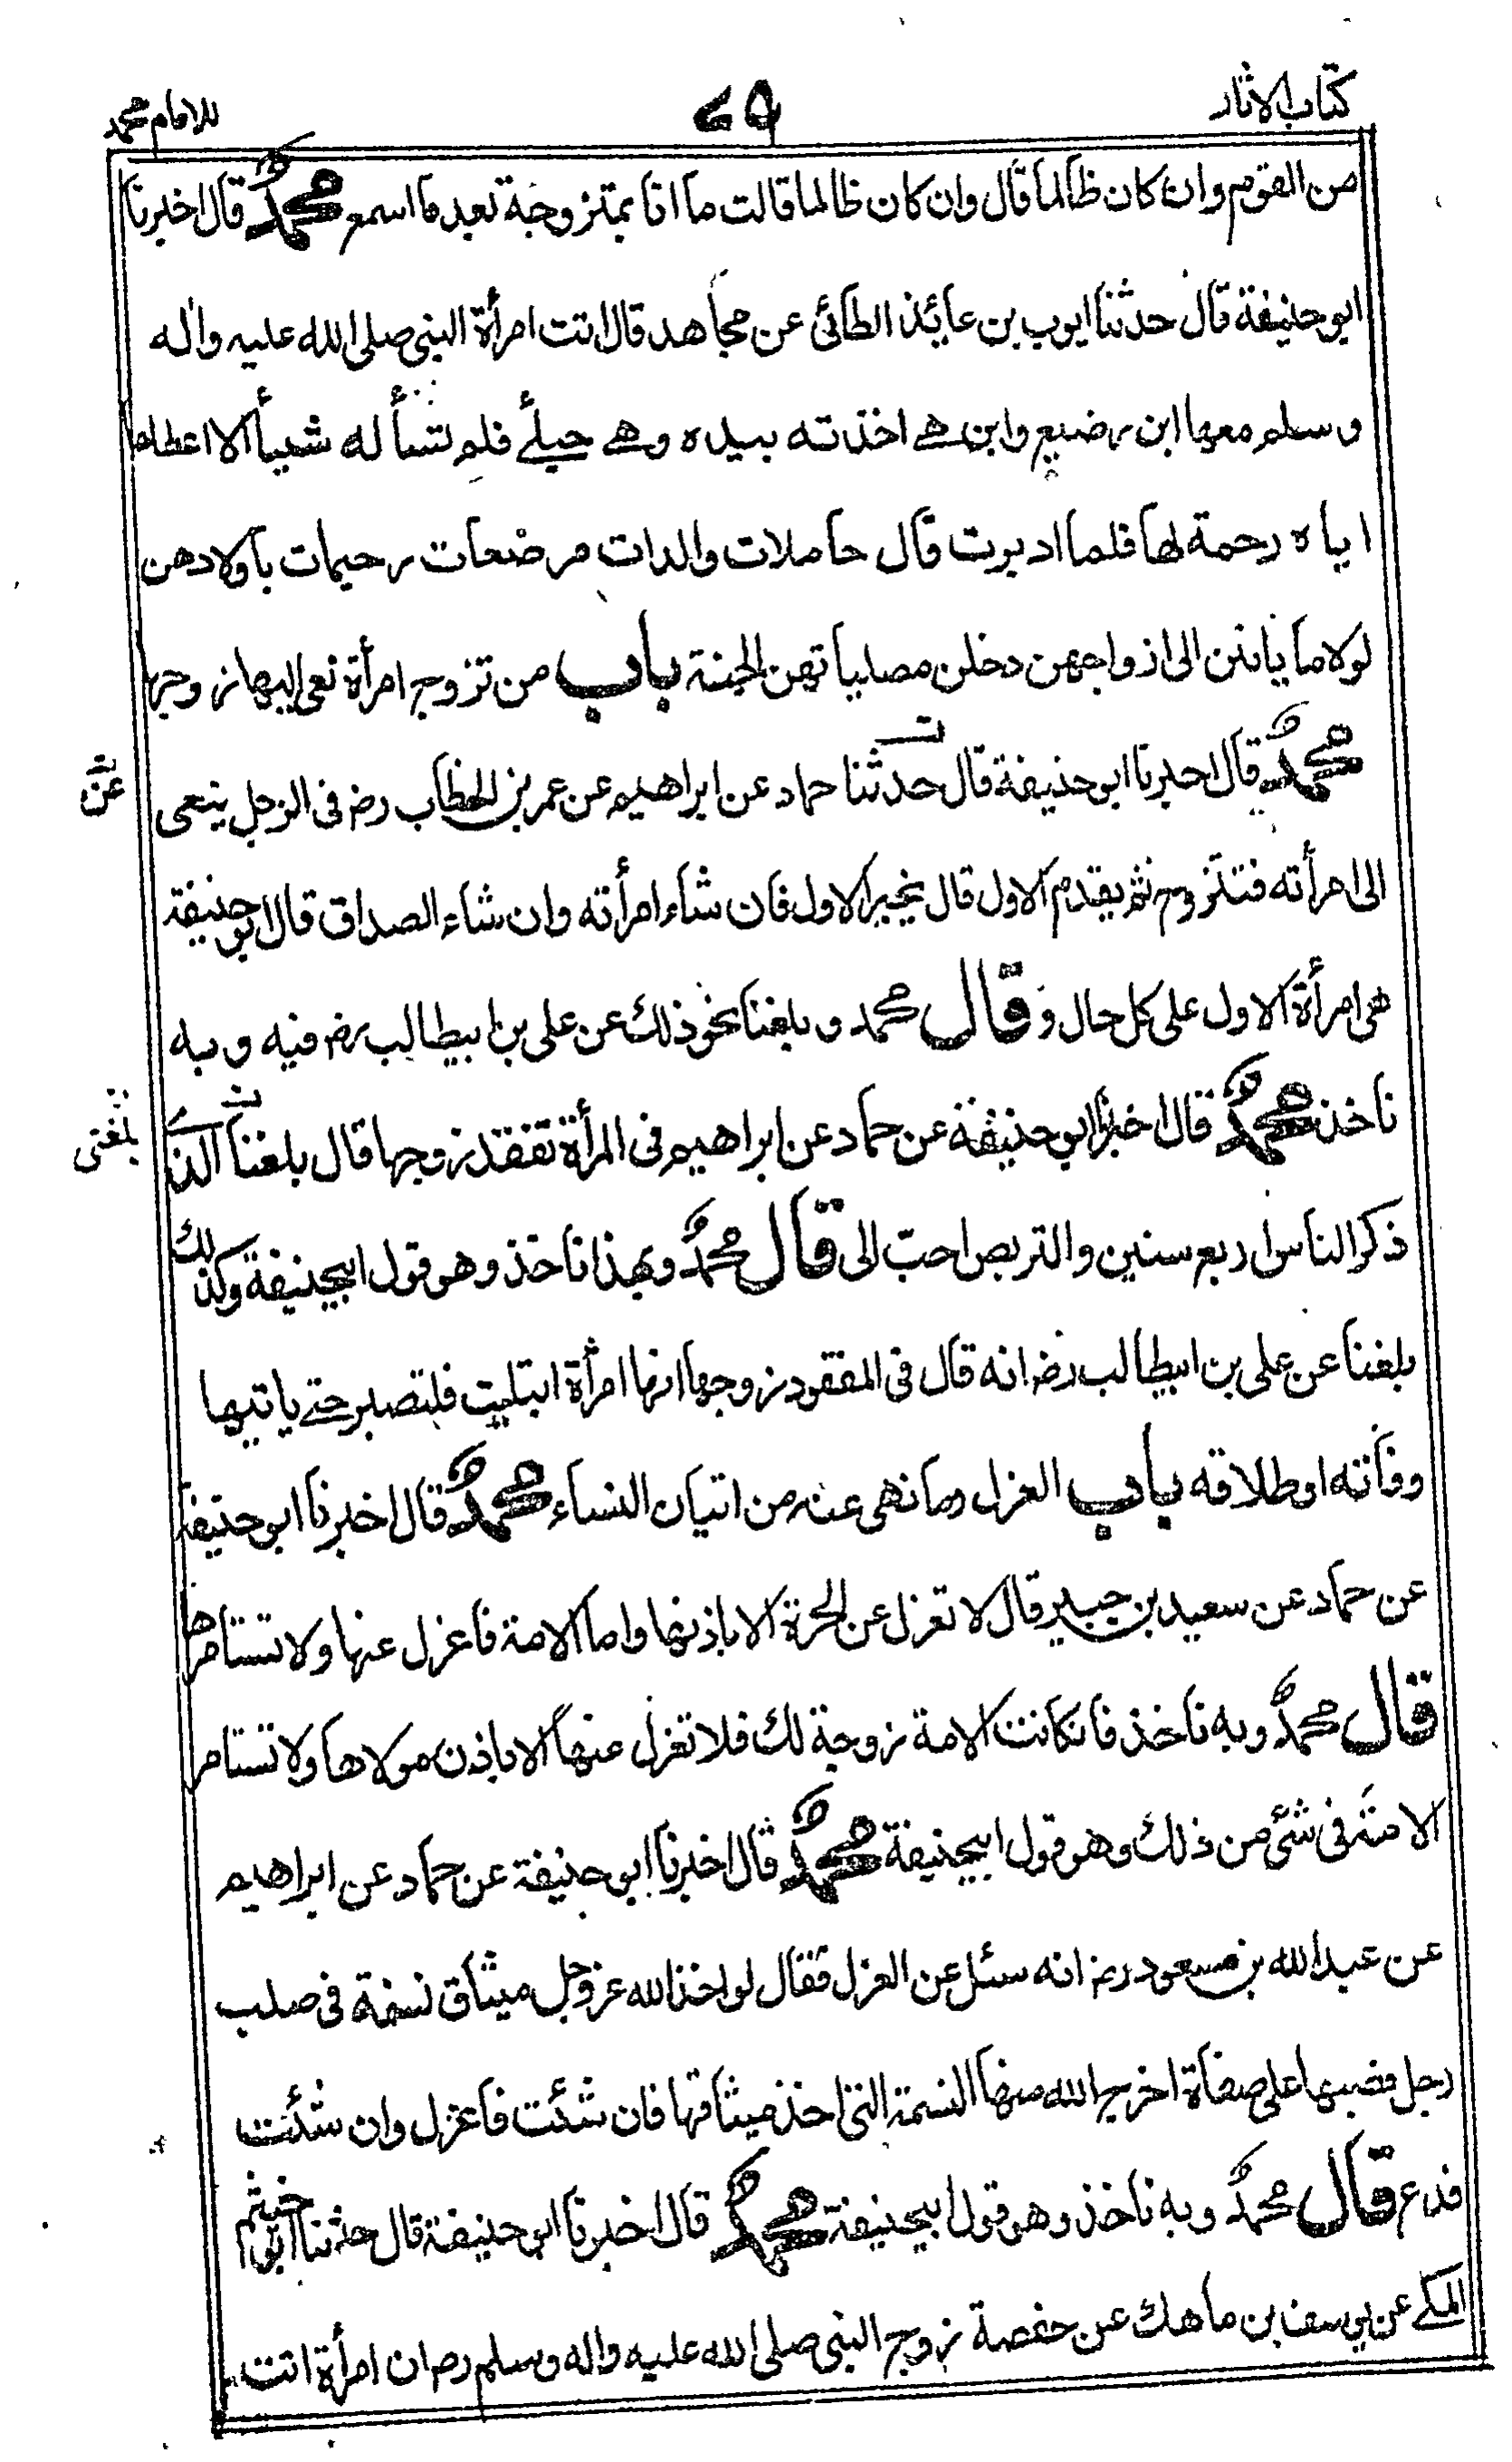 كتاب الاثار
٧٥
للامام محمد
من القوم وان كان ظالما قال وان كان ظالما قالت ما انا بمتزوجة بعد ما اسمع محمد قال اخبرنا
ابو حنيفة قال حدثنا ايوب بن عائذ الطائى عن مجاهد قال اتت امرأة النبى صلى الله عليه واله
وسلم معها ابن رضيع وابن هے اخذته بيده وهے حبلے فلم تسأله شيأ الا اعطاها
اياه رحمة لها فلما ادبرت قال حاملات والدات مرضعات رحيمات باولادهن
لولا ما ياتين الى ازواجهن دخلن مصلياتهن الجنة باب من تزوج امرأة نعى اليها زوجها
محمد قال اخبرنا ابو حنيفة قال حدثنا حماد عن ابراهيم عن عمر بن الخطاب رض فى الرجل ينعى
عن
الى امرأته فتتزوج ثم يقدم الاول قال يخير الاول فان شاء امرأته وان شاء الصداق قال ابو حنيفة
هى امرأة الاول على كل حال و قال محمد و بلغنا نحو ذلك عن على بن ابيطالب رض فيه و به
ناخذ محمد قال اخبرنا ابو حنيفة عن حماد عن ابراهيم فى المرأة تفقد زوجها قال بلغنا الذے
بلغنى
ذكر الناس اربع سنين والتربص احب الى قال محمد و بهذا ناخذ وهو قول ابيحنيفة وكذلك
بلغنا عن على بن ابيطالب رض انه قال فى المفقود زوجها انها امرأة ابتليت فلتصبر حتے ياتيها
وفاته او طلاقه باب العزل وما نهى عنه من اتيان النساء محمد قال اخبرنا ابو حنيفة
عن حماد عن سعيد بن جبير قال لا تعزل عن الحرة الا باذنها واما الامة فاعزل عنها ولا تستامرها
قال محمد وبه ناخذ فانكانت الامة زوجة لك فلا تعزل عنها الا باذن مولاها ولا تستامر
الامة فى شئ من ذلك وهو قول ابيحنيفة محمد قال اخبرنا ابو حنيفة عن حماد عن ابراهيم
عن عبد الله بن مسعود رض انه سئل عن العزل فقال لو اخذ الله عز وجل ميثاق نسمة فى صلب
رجل فصبها على صفاة اخرج الله منها النسمة التى اخذ ميثاقها فان شئت فاعزل وان شئت
فدع قال محمد وبه ناخذ وهو قول ابيحنيفة محمد قال اخبرنا ابو حنيفة قال حدثنا ابو خيثم
المكے عن يوسف بن ماهك عن حفصة زوج النبى صلى الله عليه واله وسلم رض ان امرأة اتت